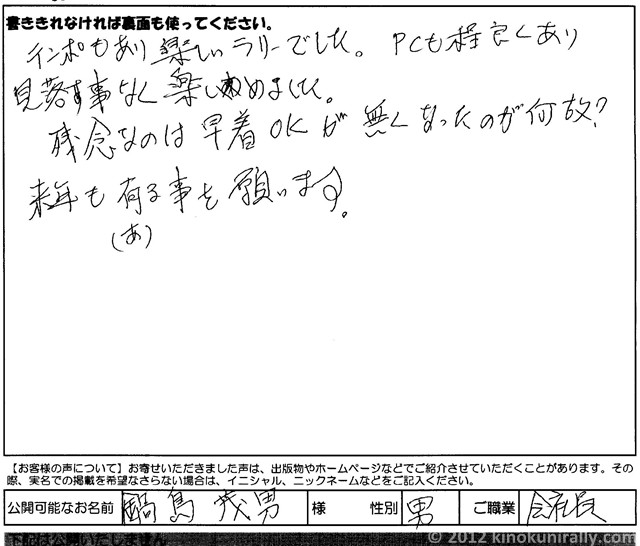 書ききれなければ裏面も使ってください。
インポもあり楽しいラリーでした。PCも程良くあり
見落す事なく楽しめました。
残念なのは早着OKが無くなったのが何故?
来年も有る事を願います。
(あ)
【お客様の声について】お寄せいただきました声は、出版物やホームページなどでご紹介させていただくことがあります。その
際、実名での掲載を希望なさらない場合は、イニシャル、ニックネームなどをご記入ください。
公開可能なお名前 鍋島茂男 様 性別 男 ご職業 会社員
下記は公開いたしません
© 2012 kinokunirally.com